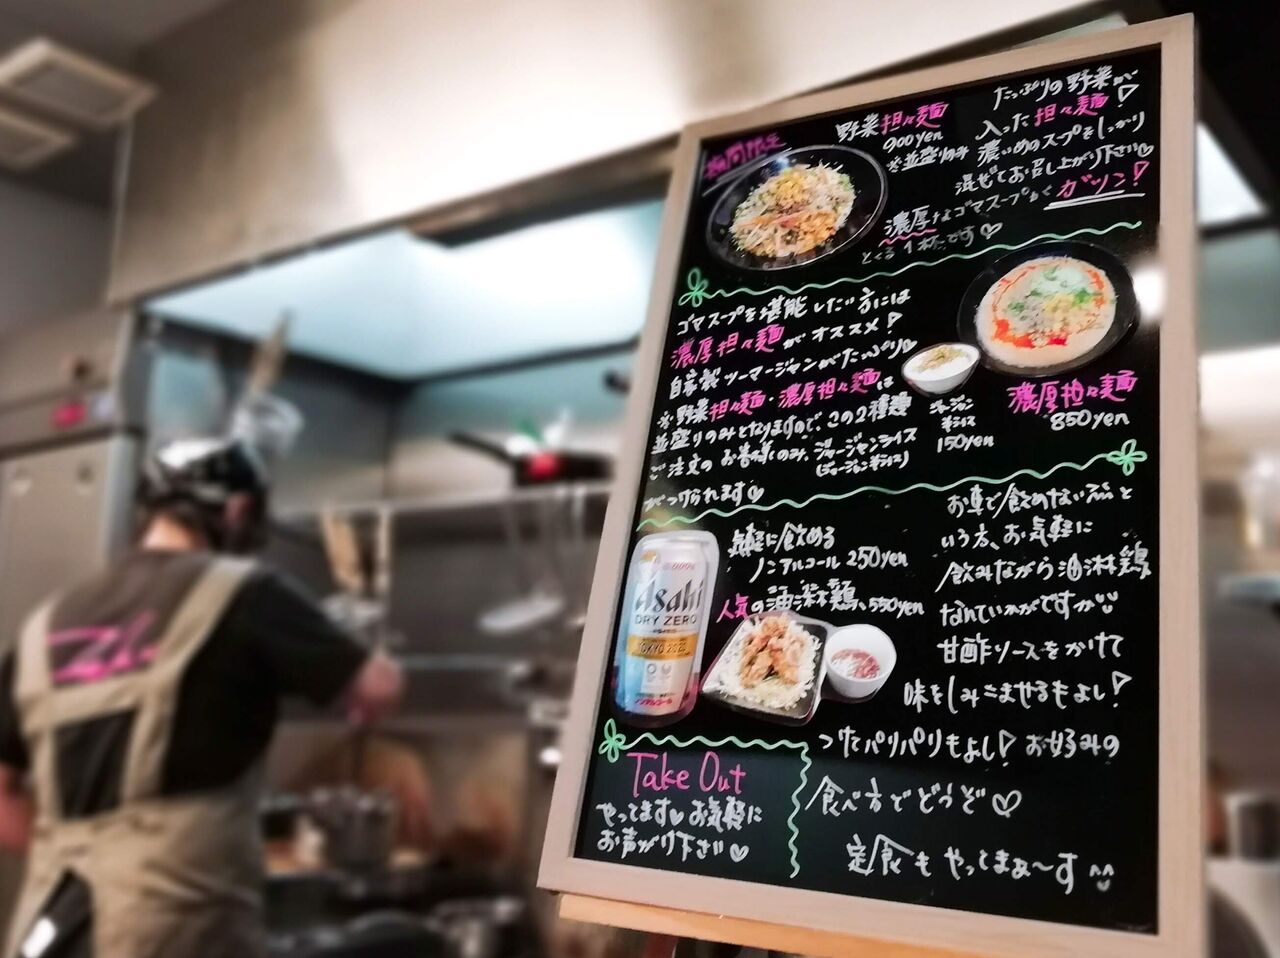 期間限定
野菜担々麺
900yen
※並盛りのみ
たっぷりの野菜が
入った担々麺!
濃いめのスープをしっかり
混ぜてお召し上がり下さい♡
濃厚なゴマスープがガツン!
とくる1杯です♡
ゴマスープを堪能したい方には
濃厚担々麺がオススメ!
自家製ツーマージャンがたっぷり♡
※野菜担々麺・濃厚担々麺は
並盛りのみとなりますので、この2種類
ご注文のお客様のみ、ジャージャンライス
がつけられます♡
150yen
濃厚担々麺
850yen
気軽に飲める
ノンアルコール 250yen
人気の油淋鶏、550yen
Asahi
DRY ZERO
TOKYO 2020
ノンアルコール
お車で飲めない…と
いう方、お気軽に
飲みながら油淋鶏
なんていかがですか
甘酢ソースをかけて
味をしみこませるもよし!
つけたパリパリもよし! お好みの
食べ方でどうぞ♡
定食もやってまぁ〜す^^
Take Out
やってます♡お気軽に
お声がけ下さい♡